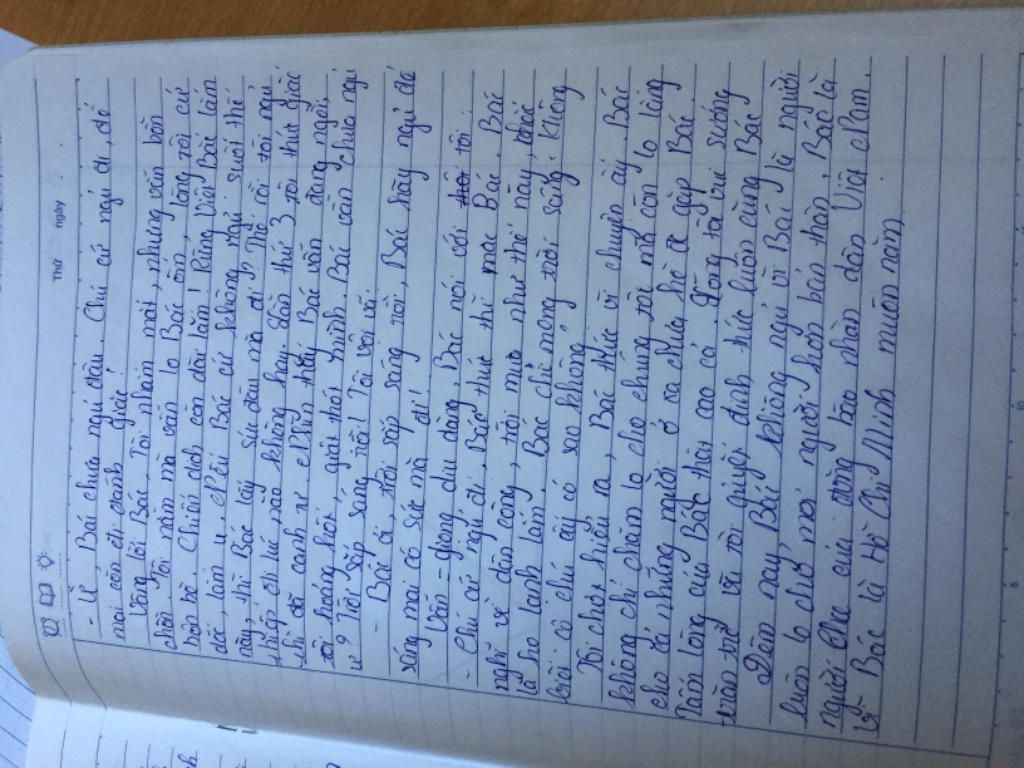 Thứ ngày
- Ừ, Bác chưa ngủ đâu. Chú cứ ngủ đi, để
mai còn đi đánh giặc!
Vâng lời Bác. Tôi nhắm mắt, nhưng vẫn bồn
chồn. Tôi nằm mà vẫn lo Bác ốm, lòng tôi cứ
bộn bề. Chiến dịch còn dài lắm! Rừng Việt Bắc lắm
dốc, lắm ụ. Nếu Bác cứ không ngủ suốt thế
này, thì Bác lấy sức đâu mà đi!? Thế rồi tôi ngủ
thiếp đi lúc nào không hay. Lần thứ 3 tôi thức giấc
thì đã canh tư. Nhìn thấy Bác vẫn đang ngồi,
tôi hoảng hốt, giật thót mình. Bác vẫn chưa ngủ
ư? Trời sắp sáng rồi! Tôi vội vã:
- Bác ơi, trời sắp sáng rồi, Bác hãy ngủ để
sáng mai có sức mà đi!
Vẫn giọng dịu dàng, Bác nói với tôi:
- Chú cứ ngủ đi. Bác thức thì mặc Bác. Bác
nghĩ về dân công, trời mưa như thế này, chắc
là họ lạnh lắm. Bác chỉ mong trời sáng. Không
biết cô chú ấy có sao không?
Tôi chợt hiểu ra, Bác thức vì chuyện ấy. Bác
không chỉ chăm lo cho chúng tôi mà còn lo lắng
cho cả những người ở xa chưa hề gặp Bác.
Tấm lòng của Bác thật cao cả. Lòng tôi vui sướng
tràn trề và tôi quyết định thức luôn cùng Bác
Đêm nay Bác không ngủ vì Bác là người
luôn lo cho mọi người hơn bản thân. Bác là
người Cha của đồng bào nhân dân Việt Nam.
Vì Bác là Hồ Chí Minh muôn năm